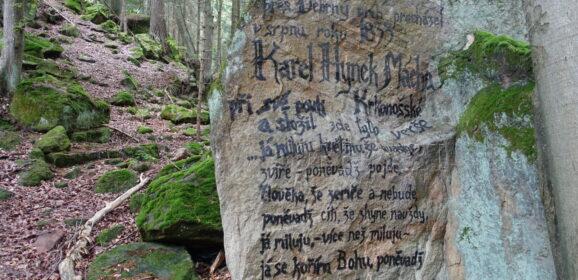 přes Debrný prý procházel
v srpnu roku 1833
Karel Hynek Mácha
při své pouti Krkonošské
a složil zde tyto verše
„Já miluji květ
zvíře – poněvadž pojde,
člověka, že zemře a nebude,
poněvadž cítí, že zhyne navždy,
já miluju, – více než miluju –
já se kořím Bohu, poněvadž